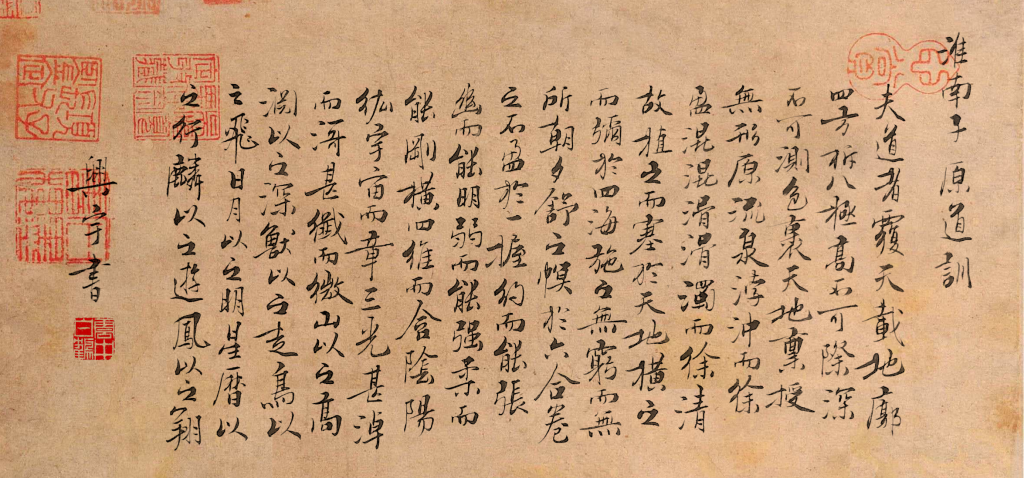 淮南子原道訓
夫道者覆天載地廓
四方柝八極高不可際深
不可測包裹天地稟授
無形原流泉浡沖而徐
盈混混滑滑濁而徐清
故植之而塞於天地橫之
而彌於四海施之無窮而無
所朝夕舒之幎於六合卷
之不盈於一握約而能張
幽而能明弱而能强柔而
能剛橫四維而含陰陽
紘宇宙而章三光甚淖
而滒甚纖而微山以之高
淵以之深獸以之走鳥以
之飛日月以之明星曆以
之行麟以之遊鳳以之翔
興宇書